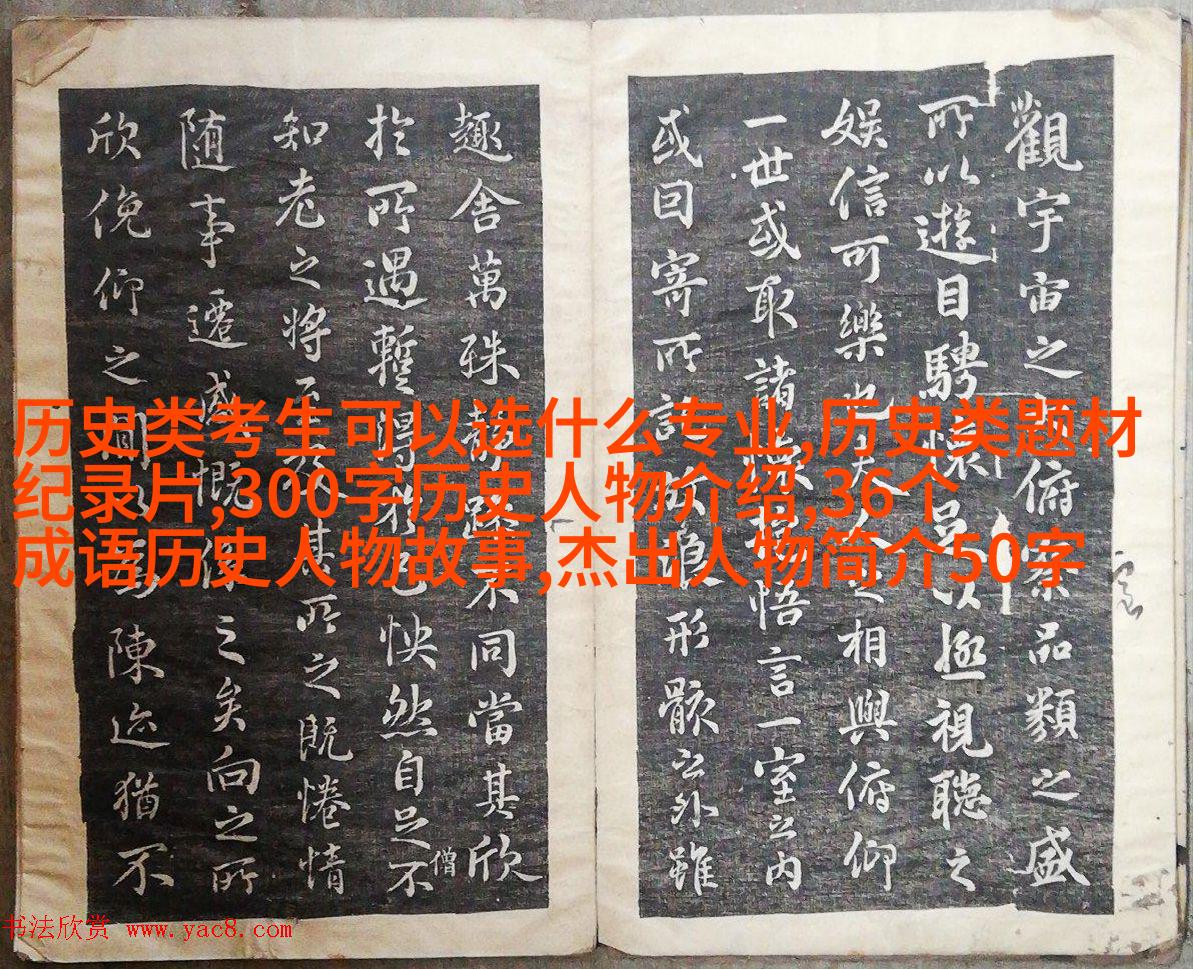 觀宇宙之俯察品類之盛
所以遊目騁懷足以極視聽之
娛信可樂也夫人之相與俯仰
一世或取諸懷抱悟言一室之內
或因寄所託放浪形骸之外雖
趣舍萬殊静躁不同當其欣
於所遇暫得於己怏然自足不
僧
知老之將至及其所之既惓情
随事遷感慨係之矣向之所
欣俛仰之間以為陳迹猶不
历史类考生可以选什么专业,历史类题材
纪录片,300字历史人物介绍,36个
成语历史人物故事,杰出人物简介50字
书法欣赏 www.yac8.com